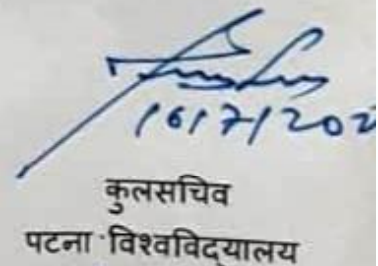 16/7/202
कुलसचिव
पटना विश्वविद्यालय